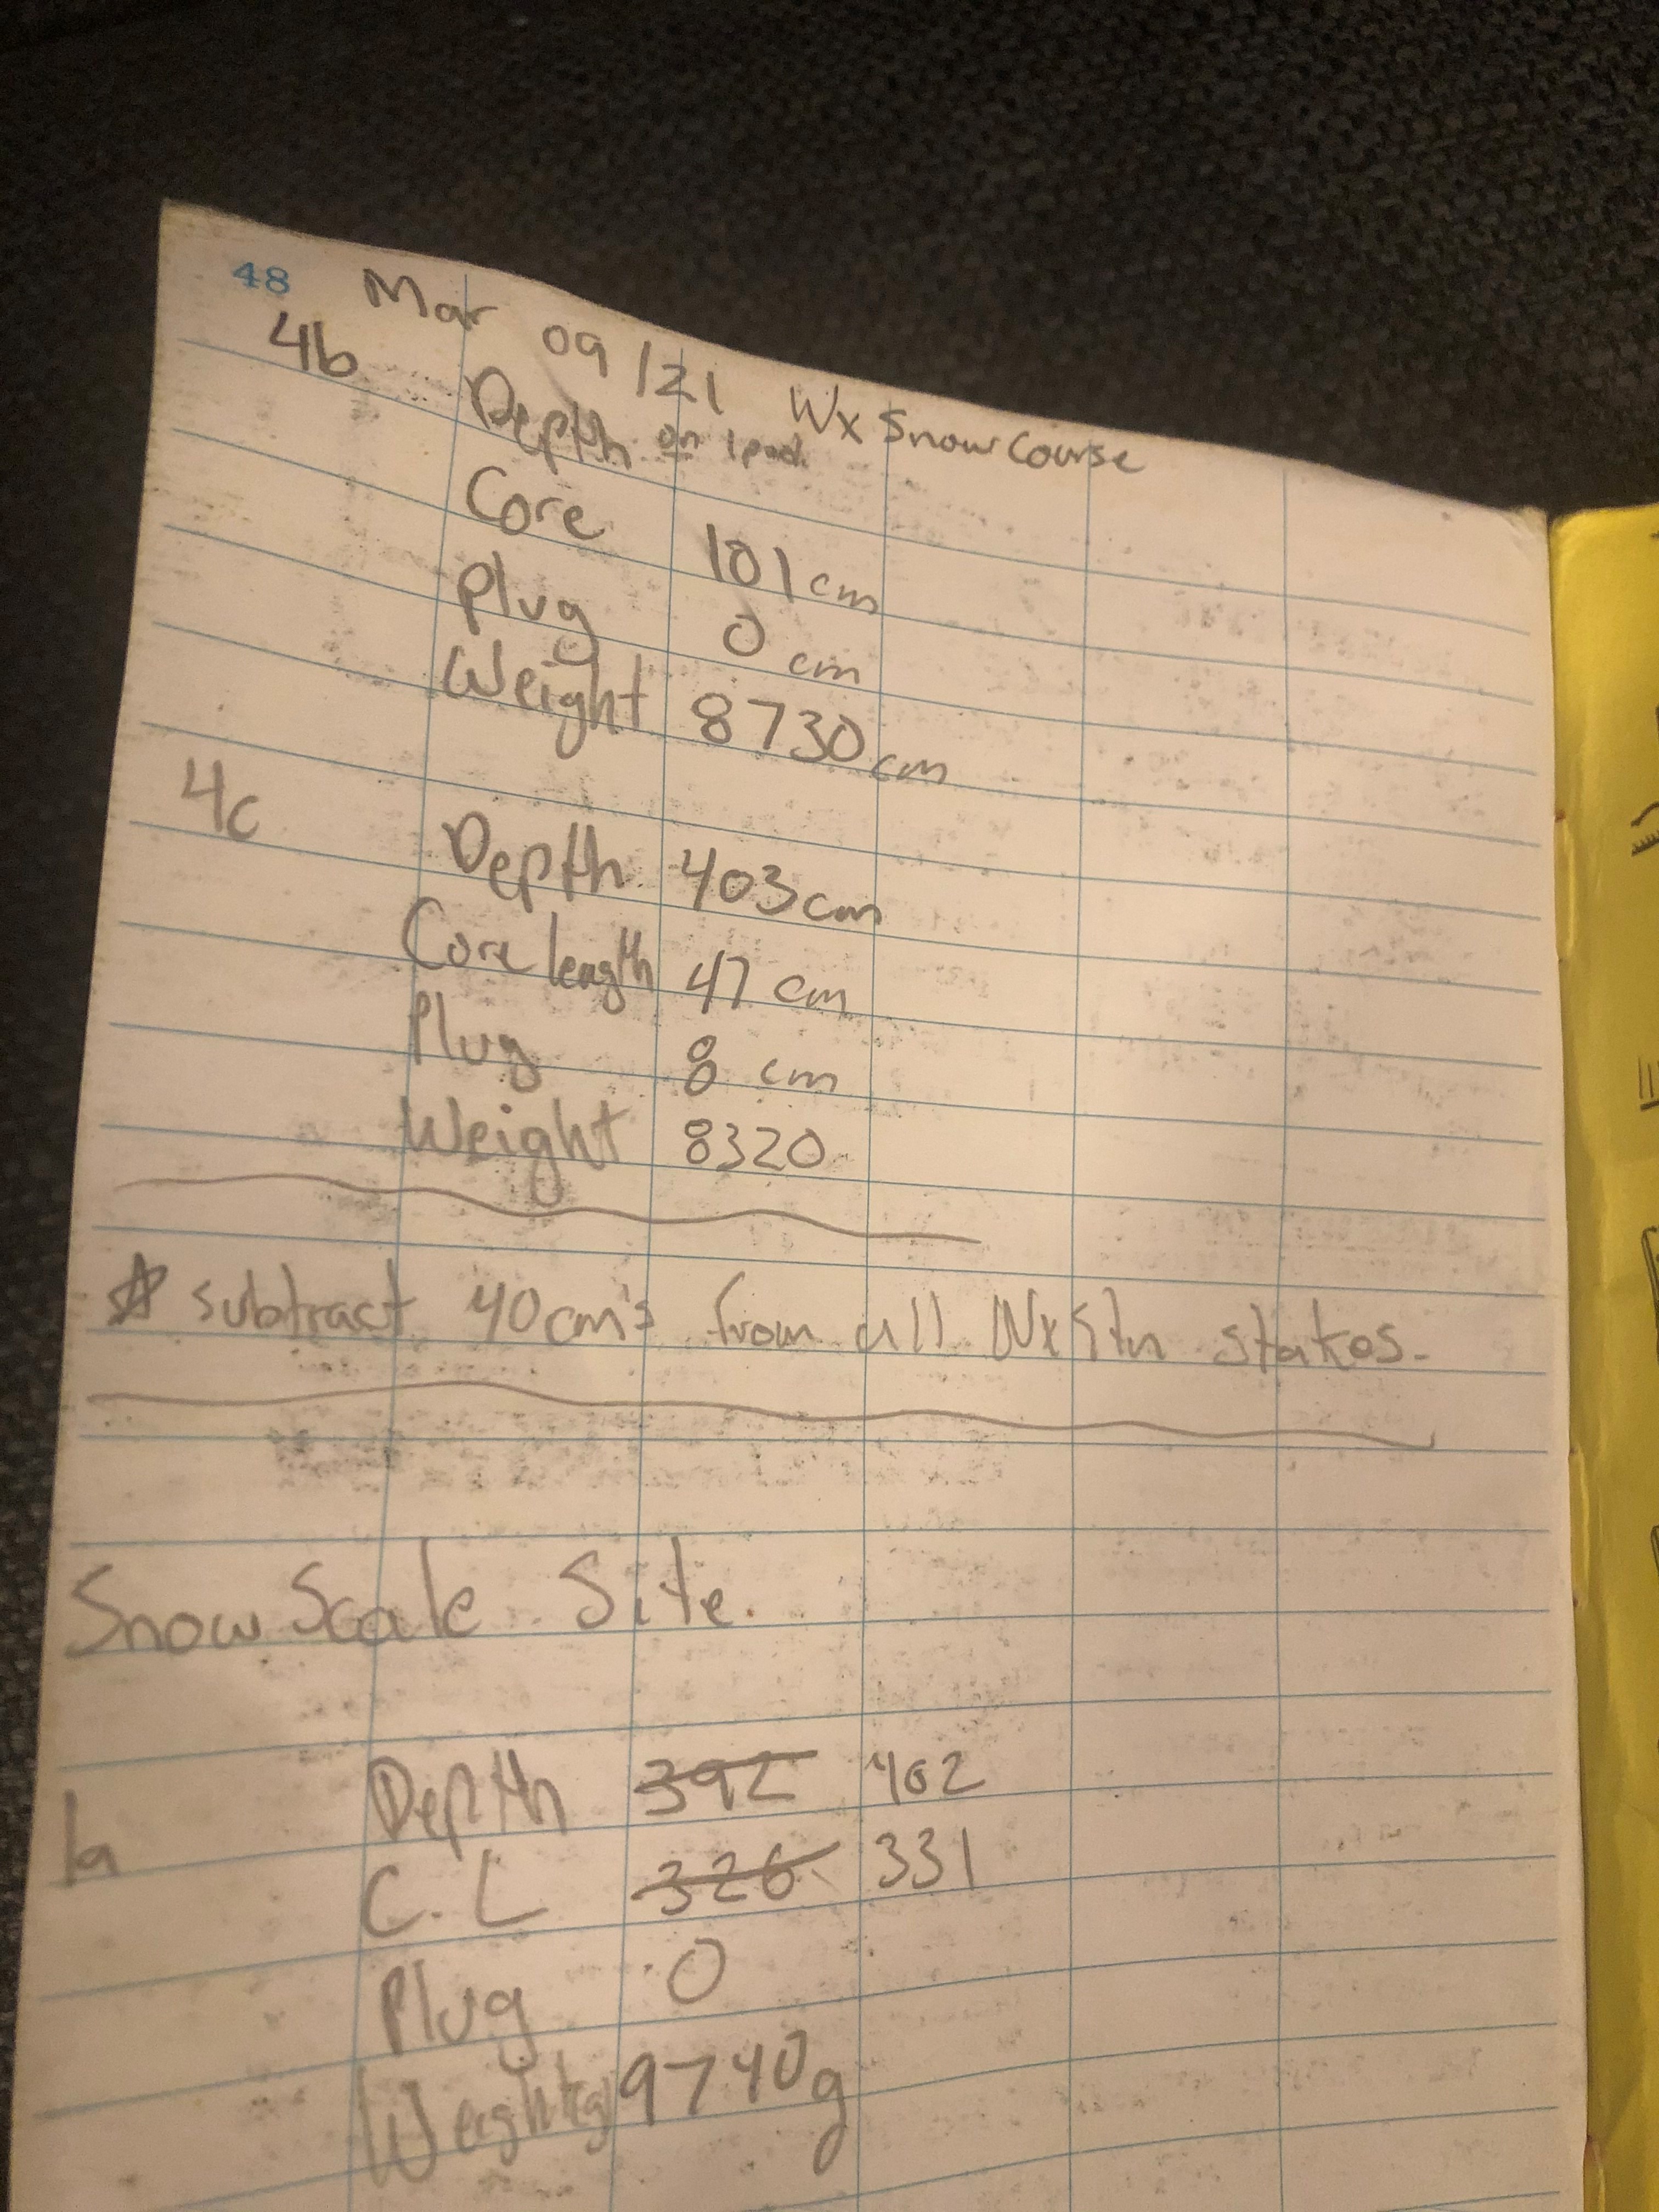 48 Mar 09/21 Wx Snow Course
4b Depth on ipad.
Core 101 cm
Plug 0 cm
Weight 8730 cm
4c Depth 403 cm
Core length 47 cm
Plug 8 cm
Weight 8320
☆ subtract 40cm's from all Wx Stn stakes.
Snow Scale Site.
1a Depth 392 402
C.L 326 331
Plug 0
Weight 9740g